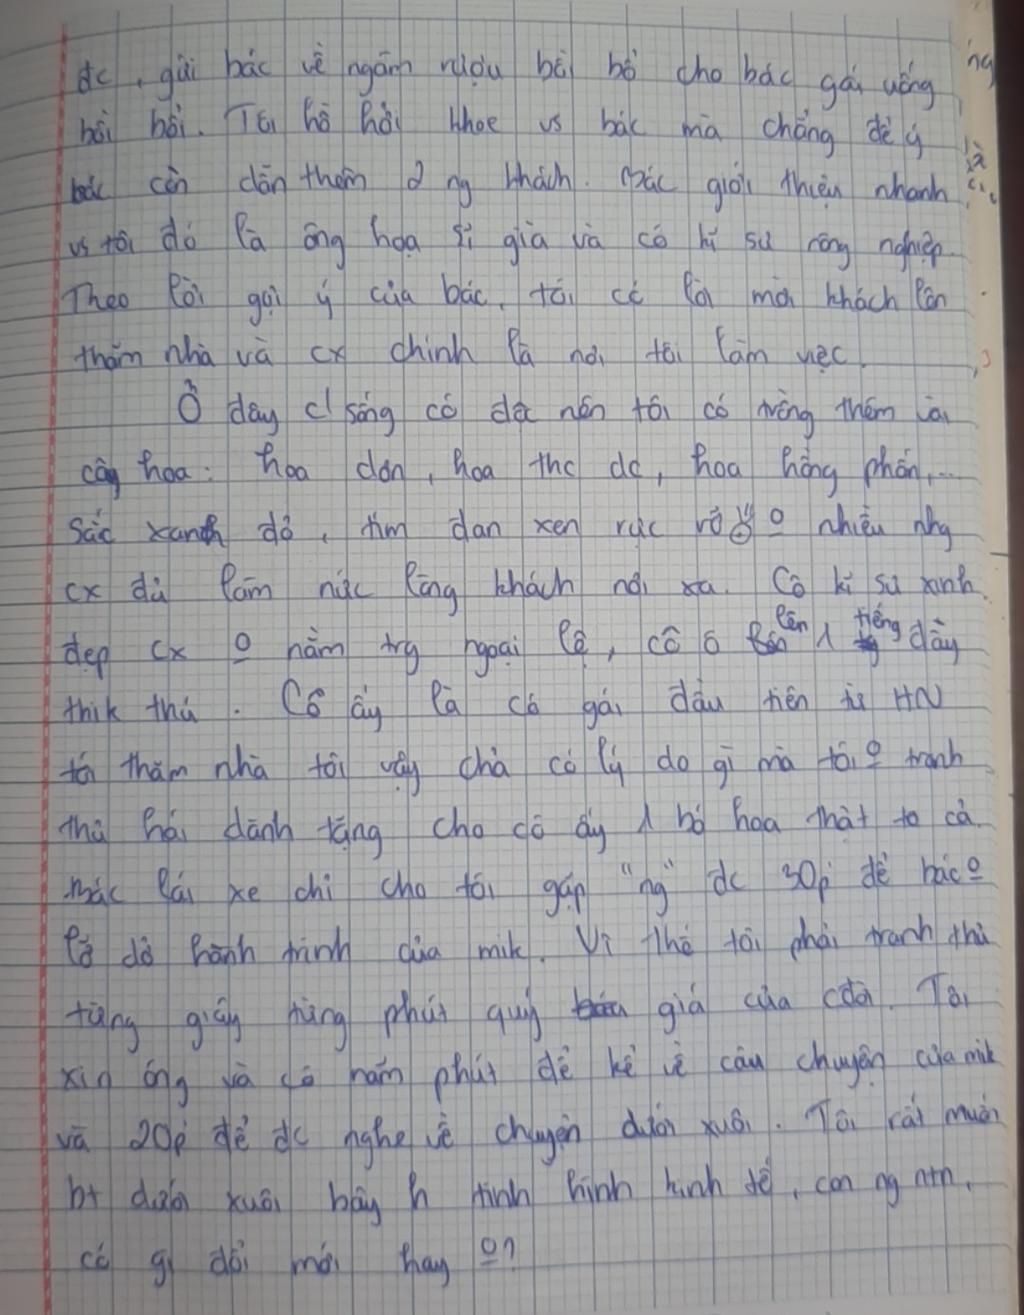 đc, gửi bác về ngâm rượu bồi bổ cho bác gái uống
hồi hồi. Tôi hồ hởi khoe vs bác mà chẳng để ý
bác còn dẫn thêm 2 ng khách. Bác giới thiệu nhanh
vs tôi đó là ông họa sĩ già và cô kĩ sư nông nghiệp.
Theo lời gợi ý của bác, tôi có lời mời khách lên
thăm nhà và cx chính là nơi tôi làm việc.
Ở đây c/ sống cô độc nên tôi có trồng thêm vài
cây hoa: hoa dơn, hoa thc dc, hoa hồng phấn,...
Sắc xanh đỏ, tím đan xen rực rỡ o nhiều nhg
cx đủ làm nức lòng khách nơi xa. Cô kĩ sư xinh
đẹp cx o nằm trg ngoại lệ, cô ồ lên 1 tiếng đầy
thik thú. Cô ấy là cô gái đầu tiên từ HN
tới thăm nhà tôi vậy chả có lý do gì mà tôi o tranh
thủ hái dành tặng cho cô ấy 1 bó hoa thật to cả.
Bác lái xe chỉ cho tôi gặp "ng" đc 30p để bác o
lỡ dở hành trình của mik. Vì thế tôi phải tranh thủ
từng giây từng phút quý giá của cđời. Tôi
xin ông và cô năm phút để kể về câu chuyện của mik
và 20p để đc nghe về chuyện dưới xuôi. Tôi rất muốn
bt dưới xuôi bây h tình hình kinh tế, con ng ntn,
có gì đổi mới hay o?